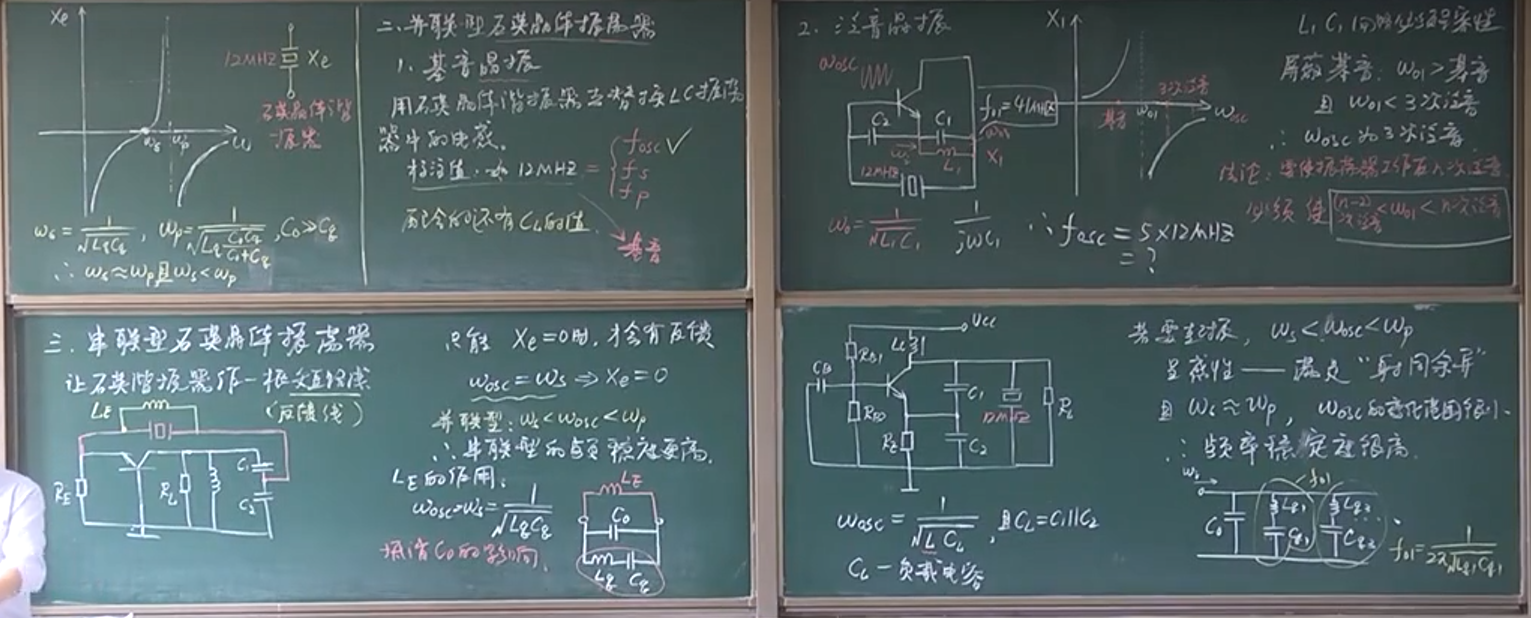 Xe
12MHZ
Xe
石英晶体谐
振器
ωs
ωp
ω
ωs = 1/√LqCq , ωp = 1/√(Lq CoCq/(Co+Cq)) , Co≫Cq
∴ ωs≈ωp且ωs<ωp
二、并联型石英晶体振荡器
1、基音晶振
用石英晶体谐振器去替换LC振荡
器中的电感。
标注值:如12MHZ = { fosc ✓
fs
fp
配合的还有CL的值.
基音
2. 泛音晶振
ωosc
C2
C1
L1
12MHZ
X1
f01=4MHZ
ω0= 1/√L1C1
1/jωC1
X1
基音
ω01
3次泛音
ωosc
∴ fosc = 5×12MHZ
= ?
L1C1回路必须呈容性
屏蔽基音: ω01>基音
且 ω01<3次泛音
∴ ωosc为3次泛音
结论: 要使振荡器工作在n次泛音
必须使 (n-2)次泛音<ω01<n次泛音
三. 串联型石英晶体振荡器
让石英谐振器作一根短路线
(反馈线)
LE
RE
RL
C1
C2
只能 Xe=0时,才会有反馈
ωosc=ωs ⇒ Xe=0
并联型: ωs<ωosc<ωp
∴ 串联型的频稳度更高.
LE的作用:
ωosc=ωs= 1/√LqCq
抵消Co的影响.
LE
Co
Lq
Cq
Vcc
RB1
Lc
CB
RB2
RE
C1
C2
12MHZ
RL
ωosc = 1/√L CL , 且CL=C1||C2
CL—负载电容
若要起振, ωs<ωosc<ωp
呈感性
且 ωs≈ωp, ωosc的变化范围很小.
∴ 频率稳定度很高.
Co
Lq1
Cq1
Lq3
Cq3
f01
f01= 1/2π√Lq1Cq1